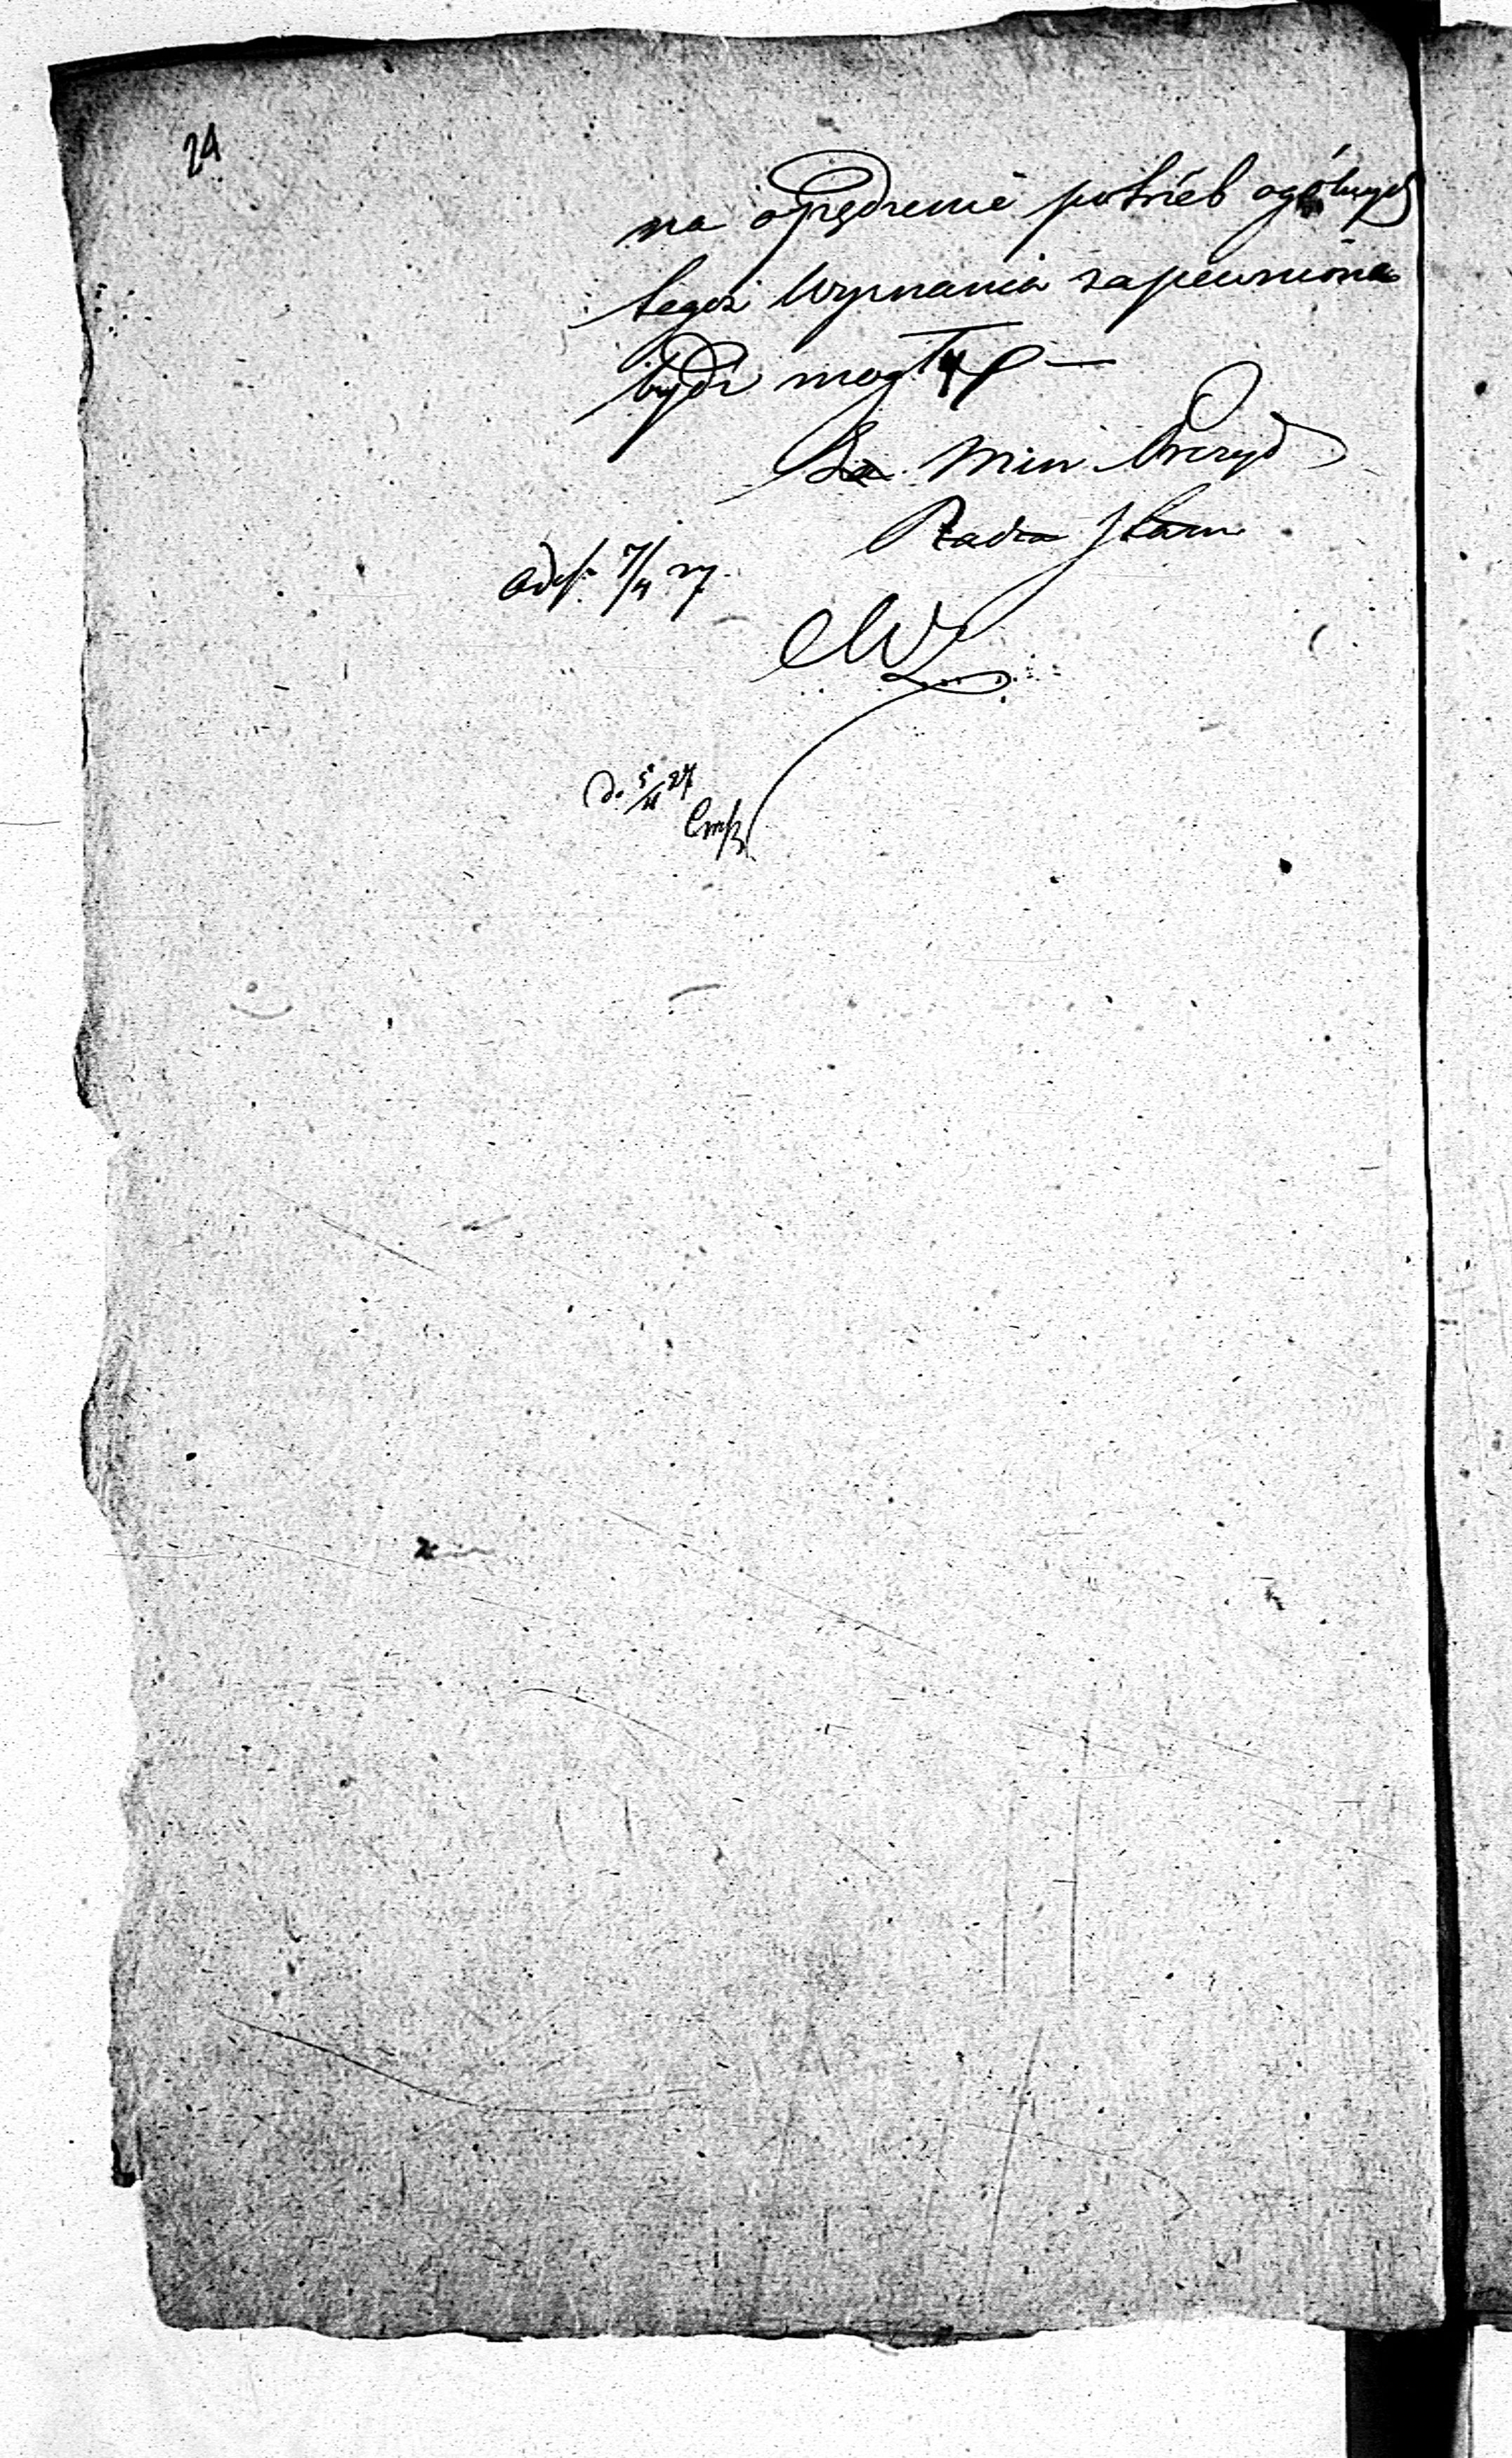 24
na opędzenie potrzeb ogólnych
tegoż Wyznania zapewnione
bydź mogły
Za Min Prezyd
Radca Stanu
7/4 27.
d. 5/4 27